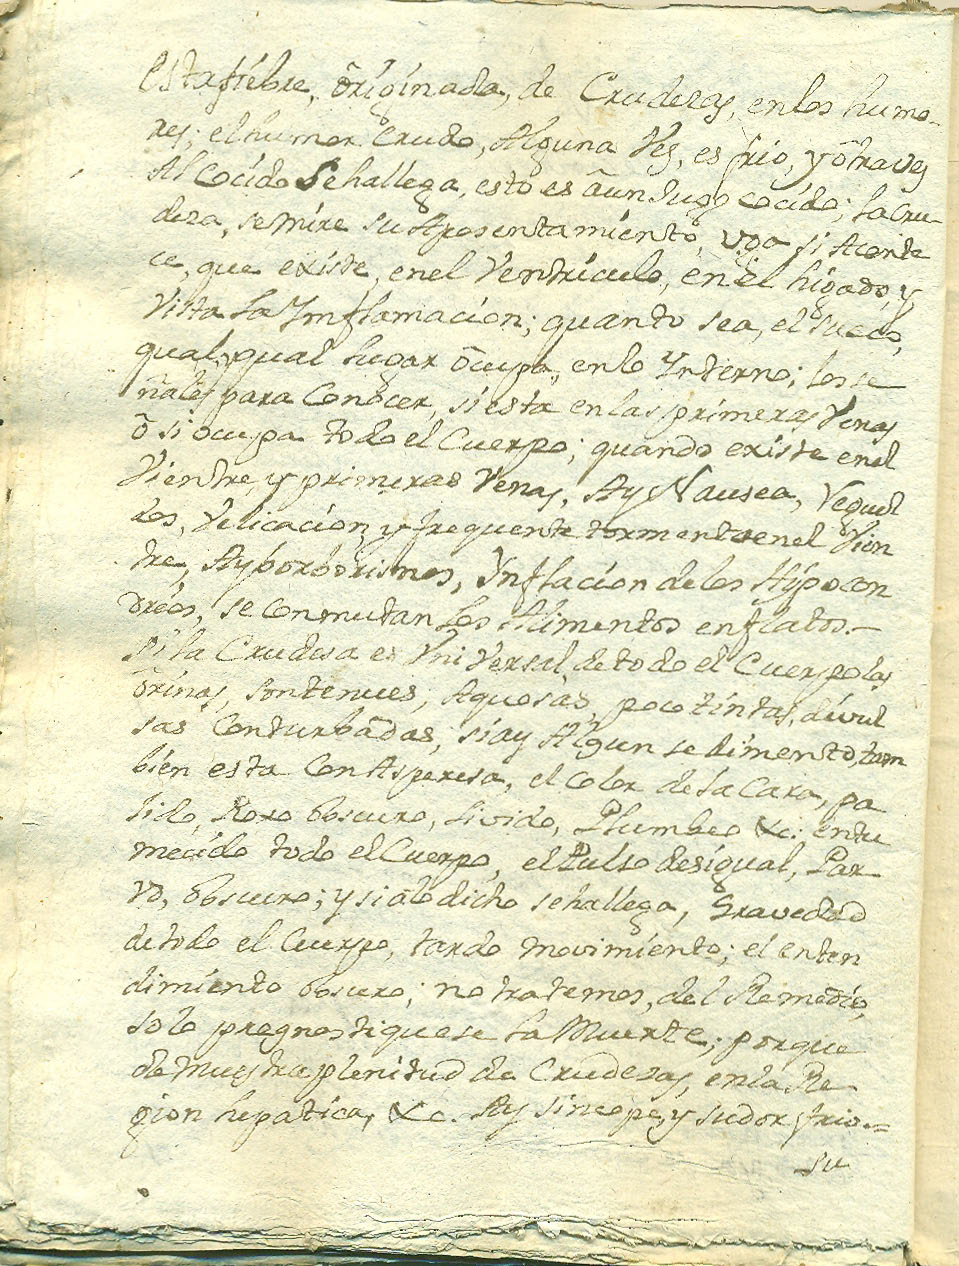 Esta fiebre, õriginada, de Crudezas, en los humo-
res; el humor Crudo, Alguna Ves, es frio, y õtra ves
Al Cocido Se hallega, esto es ãun Jugo cocido; la Cru-
deza, se mire su Aposentamiento, vga si Aconte
ce, que existe, en el Ventriculo, en el higado, y
Vista la Ynflamacion; quanto sea, el
qual, qual lugar õcupa, en lo Ynterno; los se
ñales para Conocer, si esta en las primeras Venas
õ si ocupa todo el Cuerpo; quando existe en el
Vientre, y primeras Venas, Ay Nausea,
dos, Velicacion, y frequente tormento en el Vien
tre, Ay borborismos, Ynflacion de los Hypocon
drios, se Conmutan los Alimentos en flatos.—
Si la Crudesa es Vniversal, de todo el Cuerpo las
õrinas, son tenues, Aquosas, poco tintas, divul
sas Conturbãdas, si ay Algun sedimento, tam
bien esta Con Asperesa, el Color de la Cara, pa
lido, Roxo obscuro, livido, Plumbeo &c: entu
mecido todo el Cuerpo, el Pulso desigual, Par
vo, obscuro; y si ãlo dicho se hallega, Gravedad
de todo el Cuerpo, tardo movimiento; el enten
dimiento obscuro; no tratemos, del Remedio,
solo prognostiquese la Muerte; porque
demuestra plenitud de Crudezas, en la Re
gion hepatica, &c. Ay sincope, y sudor frio.=
su